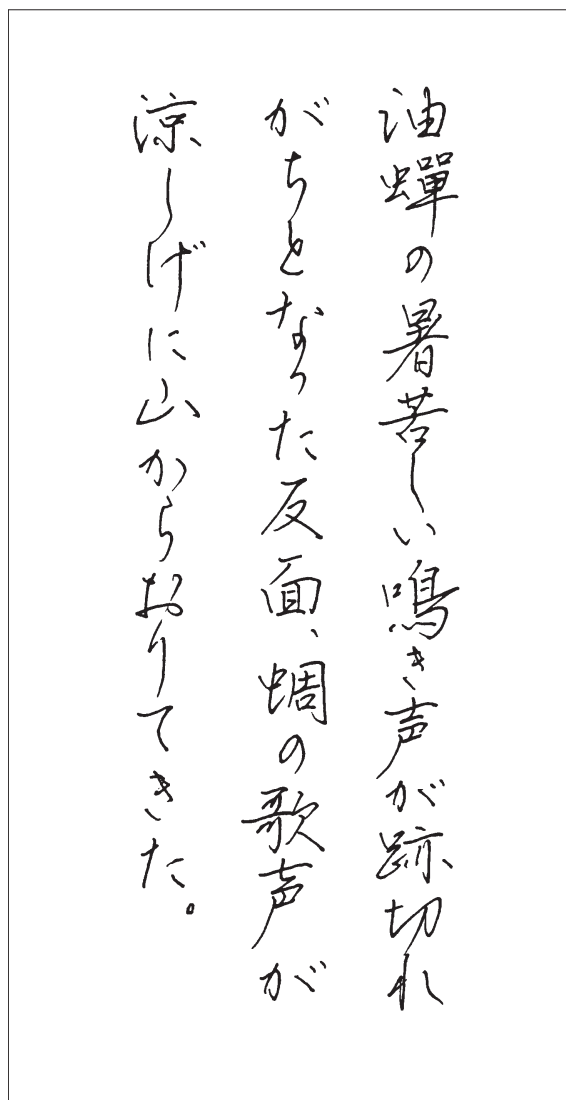 油蟬の暑苦しい鳴き声が跡切れ
がちとなった反面、蜩の歌声が
涼しげに山からおりてきた。